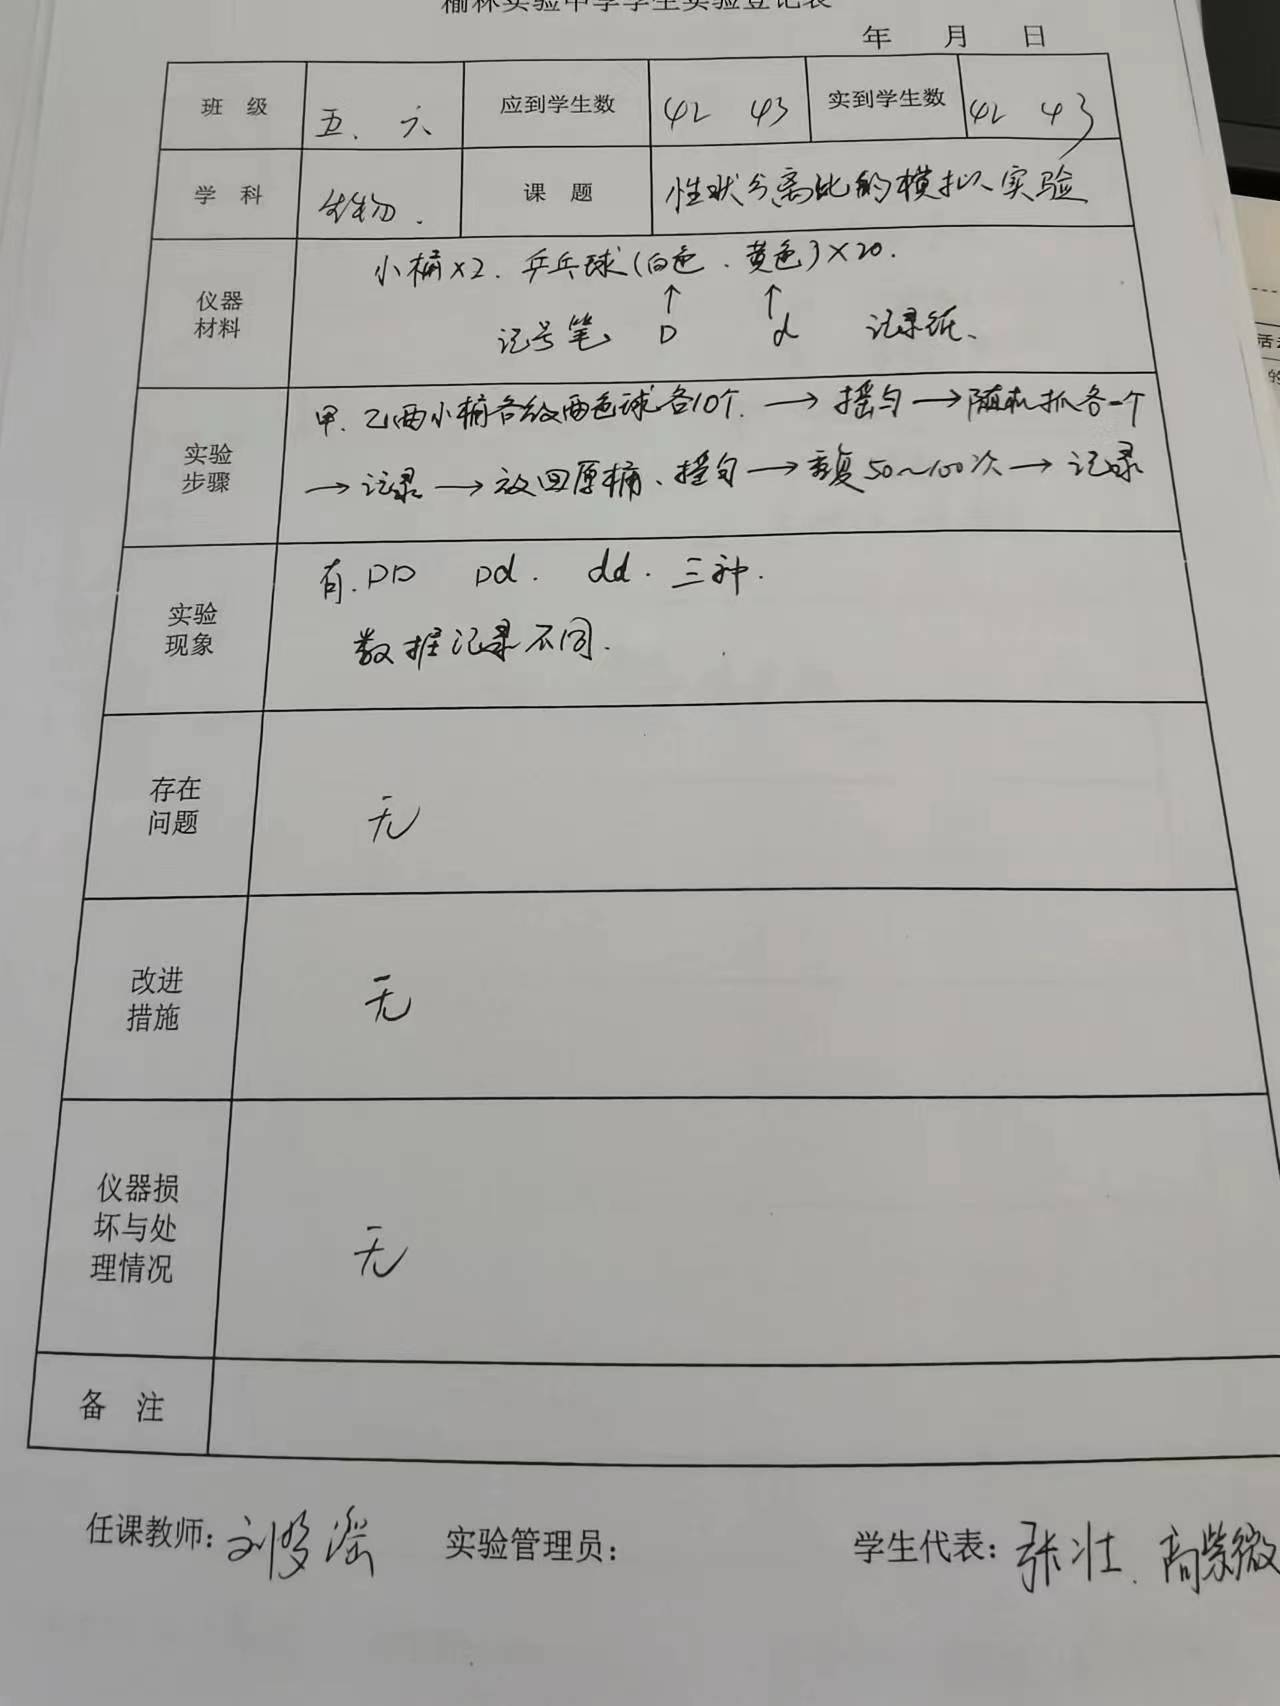 榆林实验中学学生实验登记表
年 月 日
班 级 五、六 应到学生数 42 43 实到学生数 42 43
学 科 生物. 课 题 性状分离比的模拟实验
仪器
材料
小桶×2. 乒乓球(白色、黄色)×20.
↑ ↑
记号笔 D d 记录纸、
实验
步骤
甲、乙两小桶各放两色球各10个. → 摇匀 → 随机抓各一个
→ 记录 → 放回原桶、摇匀 → 重复50~100次 → 记录
实验
现象
有. DD Dd. dd. 三种.
数据记录不同.
存在
问题
无
改进
措施
无
仪器损
坏与处
理情况
无
备 注
任课教师: 刘梦瑶 实验管理员: 学生代表: 张壮、高紫微